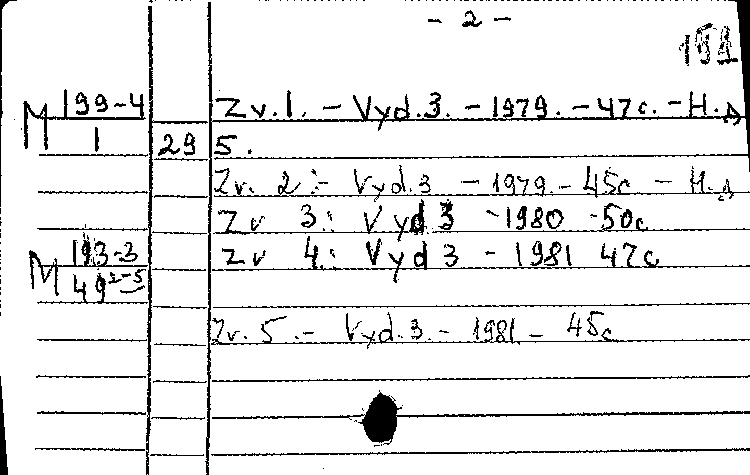 - 2 -
M 199-4 Zv.1. - Vyd.3. - 1979. - 47c. - H.Д
1 29 5.
Zv. 2:- Vyd.3 - 1979. - 45c - H.Д
Zv 3: Vyd 3 - 1980 - 50c
M 193-3 Zv 4: Vyd 3 - 1981 47c
49 2-5
Zv. 5. - Vyd.3. - 1981 - 45c